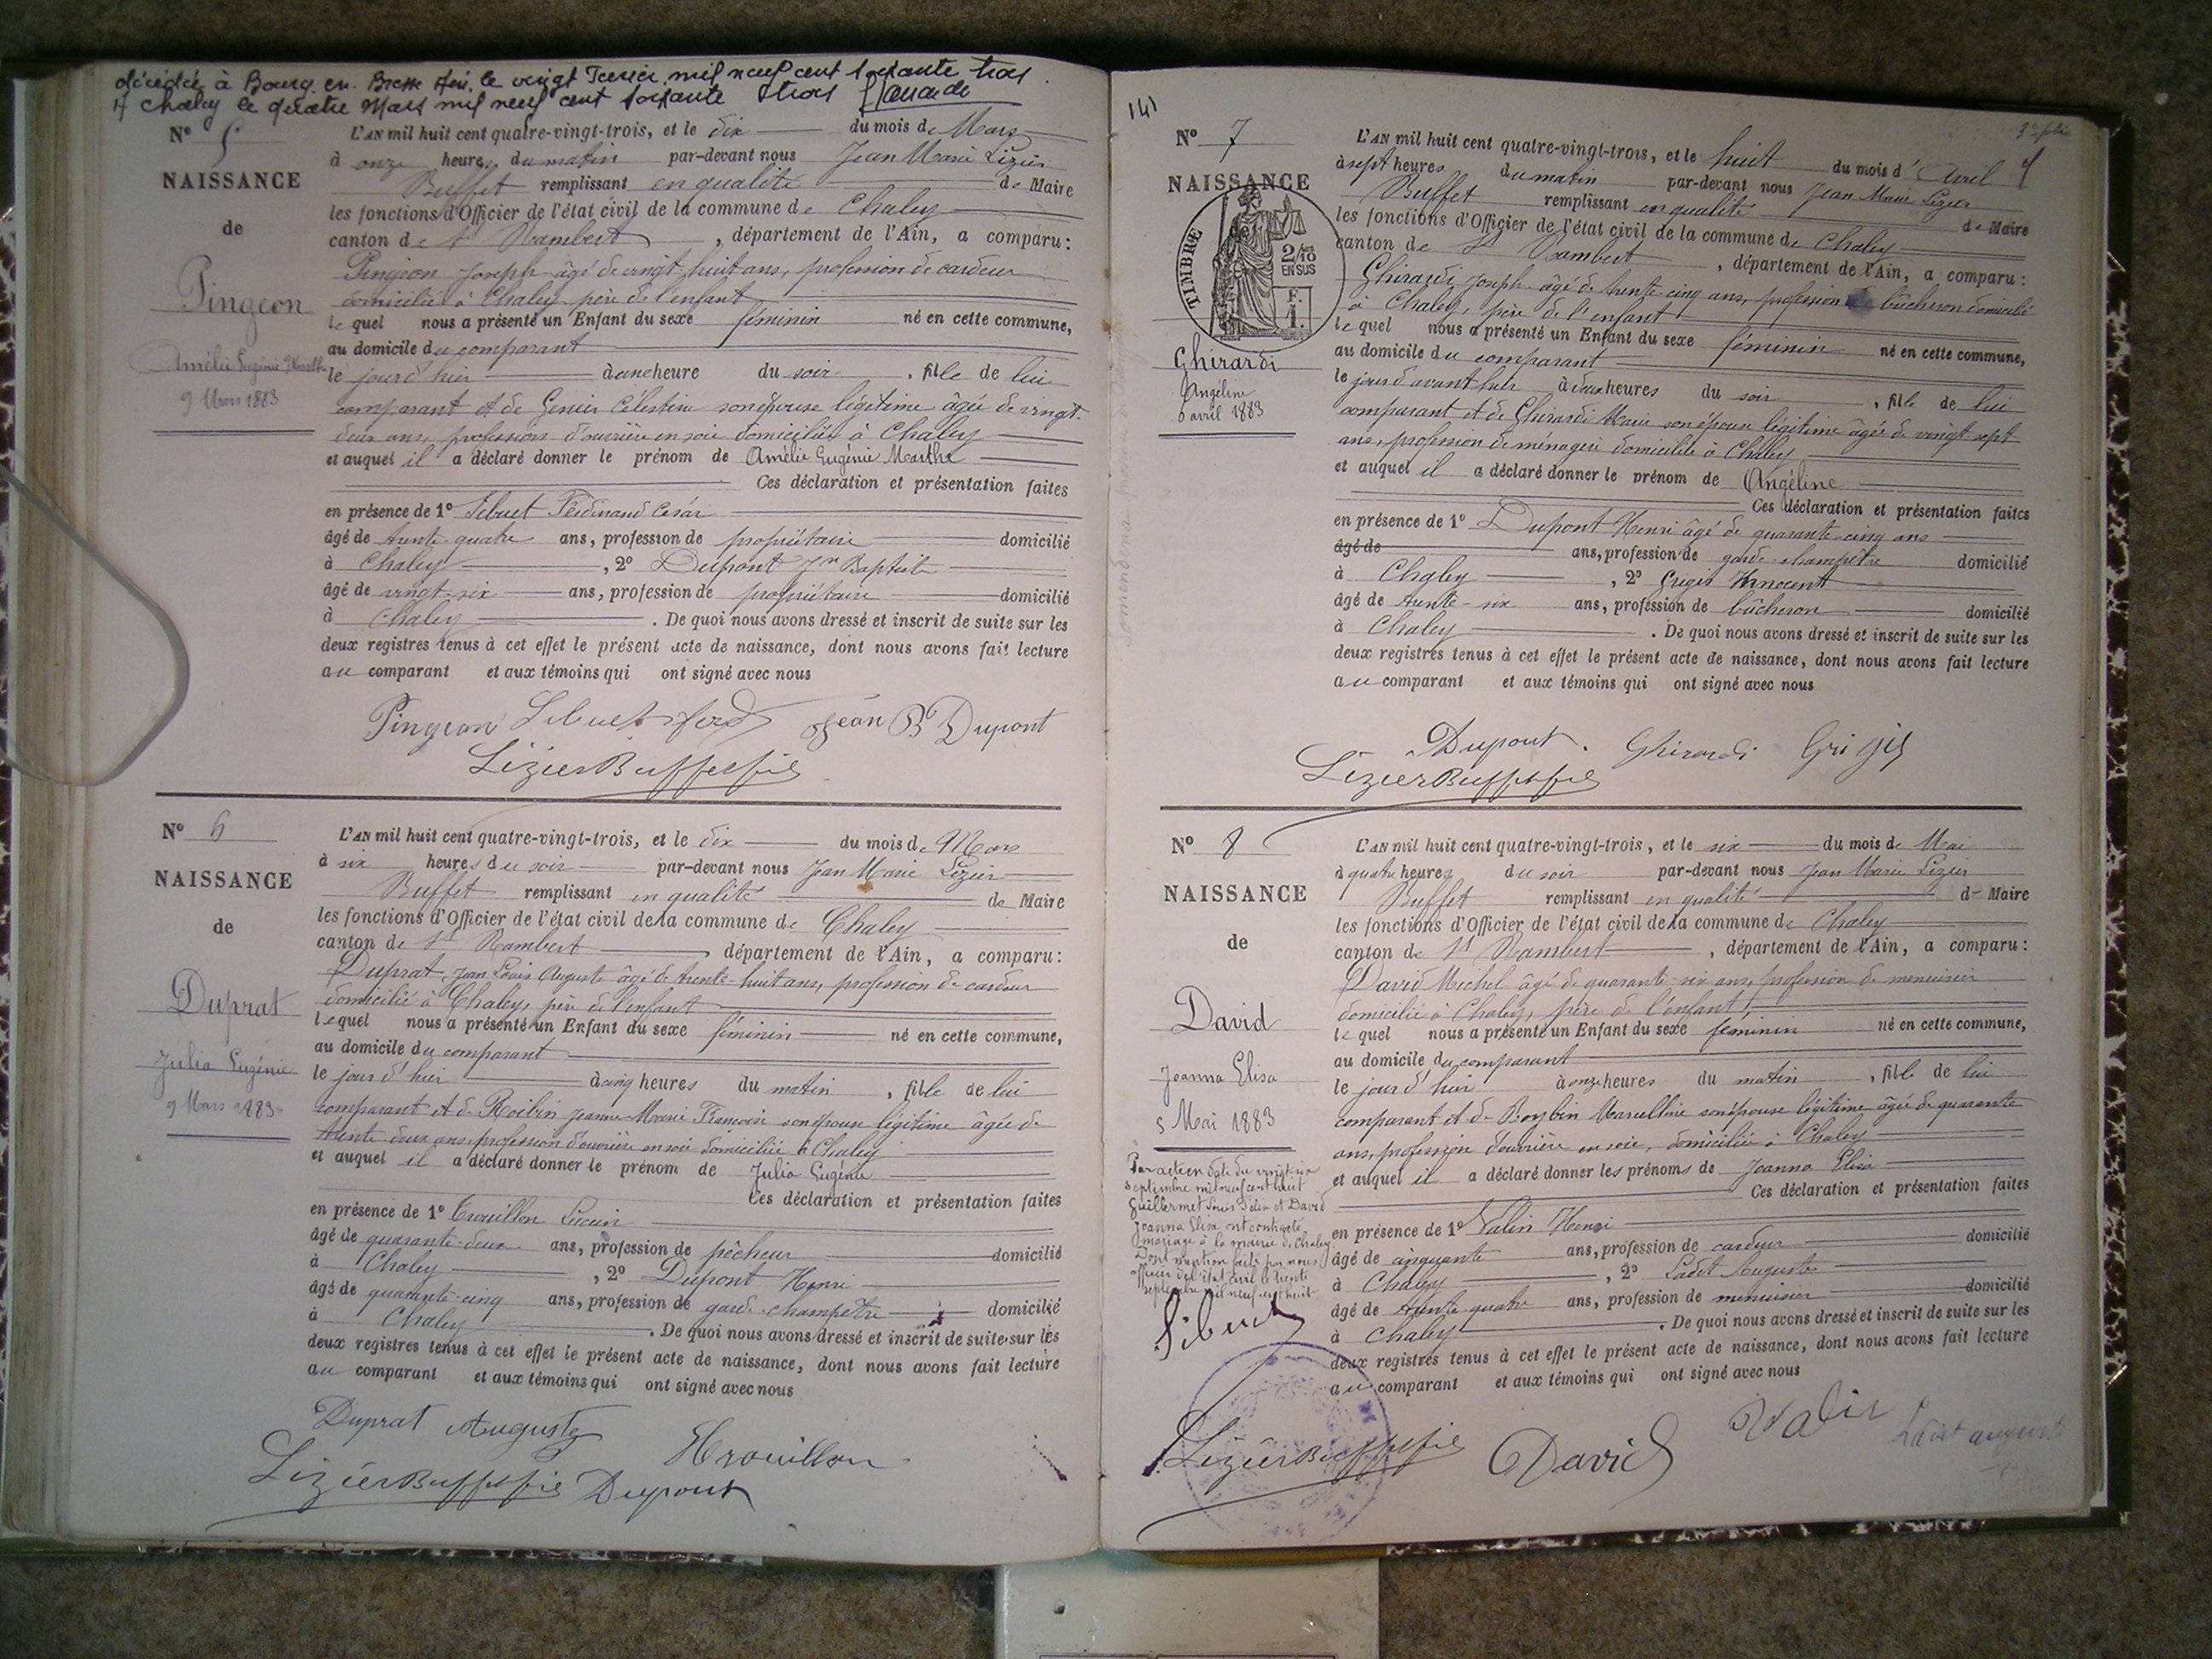 décédée à Bourg en Bresse Ain, le vingt Janvier mil neuf cent soixante trois
A Chaley le quatre Mars mil neuf cent soixante trois
N° 5
NAISSANCE
de
Pingeon
Amélie Eugénie Marthe
9 Mars 1883
L'AN mil huit cent quatre-vingt-trois, et le dix du mois de Mars
à onze heures du matin par-devant nous Jean Marie Lizier
Buffet remplissant en qualité de Maire
les fonctions d'Officier de l'état civil de la commune de Chaley
canton de St Rambert, département de l'Ain, a comparu:
Pingeon Joseph âgé de vingt-huit ans, profession de cardeur
domicilié à Chaley, père de l'enfant
lequel nous a présenté un Enfant du sexe féminin né en cette commune,
au domicile du comparant
le jour d'hier à une heure du soir, fille de lui
comparant et de Célestine son épouse légitime âgée de vingt
deux ans, profession d'ouvrière en soie domiciliée à Chaley
et auquel il a déclaré donner le prénom de Amélie Eugénie Marthe
Ces déclaration et présentation faites
en présence de 1° Sibuet Ferdinand César
âgé de trente quatre ans, profession de propriétaire domicilié
à Chaley, 2° Dupont Jn Baptiste
âgé de vingt-six ans, profession de propriétaire domicilié
à Chaley. De quoi nous avons dressé et inscrit de suite sur les
deux registres tenus à cet effet le présent acte de naissance, dont nous avons fait lecture
au comparant et aux témoins qui ont signé avec nous
Pingeon Sibuet ferd Jean B Dupont
Lizier Buffet fils
N° 6
NAISSANCE
de
Duprat
Julia Eugénie
9 Mars 1883
L'AN mil huit cent quatre-vingt-trois, et le dix du mois de Mars
à six heures du soir par-devant nous Jean Marie Lizier
Buffet remplissant en qualité de Maire
les fonctions d'Officier de l'état civil de la commune de Chaley
canton de St Rambert département de l'Ain, a comparu:
Duprat, Jean Louis Auguste âgé de trente-huit ans, profession de cardeur
domicilié à Chaley, père de l'enfant
lequel nous a présenté un Enfant du sexe féminin né en cette commune,
au domicile du comparant
le jour d'hier à cinq heures du matin, fille de lui
comparant et de Roibin Jeanne Marie Françoise son épouse légitime âgée de
trente deux ans, profession d'ouvrière en soie domiciliée à Chaley
et auquel il a déclaré donner le prénom de Julia Eugénie
Ces déclaration et présentation faites
en présence de 1° Trouillon Lucien
âgé de quarante-deux ans, profession de pêcheur domicilié
à Chaley, 2° Dupont Henri
âgé de quarante-cinq ans, profession de garde-champêtre domicilié
à Chaley. De quoi nous avons dressé et inscrit de suite sur les
deux registres tenus à cet effet le présent acte de naissance, dont nous avons fait lecture
au comparant et aux témoins qui ont signé avec nous
Duprat Auguste Trouillon
Lizier Buffet fils Dupont
(4)
N° 7
NAISSANCE
TIMBRE
2/10
EN SUS
F.
1.
Ghirardi
Angéline
6 avril 1883
L'AN mil huit cent quatre-vingt-trois, et le huit du mois d'Avril
à sept heures du matin par-devant nous Jean Marie Lizier
Buffet remplissant en qualité de Maire
les fonctions d'Officier de l'état civil de la commune de Chaley
canton de St Rambert, département de l'Ain, a comparu:
Ghirardi Joseph âgé de trente-cinq ans, profession de bûcheron domicilié
à Chaley, père de l'enfant
lequel nous a présenté un Enfant du sexe féminin né en cette commune,
au domicile du comparant
le jour d'avant hier à deux heures du soir, fille de lui
comparant et de Ghirardi Marie son épouse légitime âgée de vingt-sept
ans, profession de ménagère domiciliée à Chaley
et auquel il a déclaré donner le prénom de Angéline
Ces déclaration et présentation faites
en présence de 1° Dupont Henri âgé de quarante-cinq ans
âgé de ans, profession de garde-champêtre domicilié
à Chaley, 2° Innocent
âgé de trente-six ans, profession de bûcheron domicilié
à Chaley. De quoi nous avons dressé et inscrit de suite sur les
deux registres tenus à cet effet le présent acte de naissance, dont nous avons fait lecture
au comparant et aux témoins qui ont signé avec nous
Dupont. Ghirardi Grigis
Lizier Buffet fils
N° 8
NAISSANCE
de
David
Joanna Elisa
5 Mai 1883
Par acte en date du vingt-six
septembre mil neuf cent huit
Guillermet Louis Félix et David
Joanna Elisa ont contracté
mariage à la mairie de Chaley
Dont mention faite par nous
officier de l'état civil le trente
septembre mil neuf cent huit
Sibuet
L'AN mil huit cent quatre-vingt-trois, et le six du mois de Mai
à quatre heures du soir par-devant nous Jean Marie Lizier
Buffet remplissant en qualité de Maire
les fonctions d'Officier de l'état civil de la commune de Chaley
canton de St Rambert, département de l'Ain, a comparu:
David Michel âgé de quarante-six ans, profession de menuisier
domicilié à Chaley, père de l'enfant,
lequel nous a présenté un Enfant du sexe féminin né en cette commune,
au domicile du comparant
le jour d'hier à onze heures du matin, fille de lui
comparant et de Marcelline son épouse légitime âgée de quarante
ans, profession d'ouvrière en soie, domiciliée à Chaley
et auquel il a déclaré donner les prénoms de Joanna Elisa
Ces déclaration et présentation faites
en présence de 1° Valin Henri
âgé de cinquante ans, profession de cardeur domicilié
à Chaley, 2° Ladet Auguste
âgé de trente quatre ans, profession de menuisier domicilié
à Chaley. De quoi nous avons dressé et inscrit de suite sur les
deux registres tenus à cet effet le présent acte de naissance, dont nous avons fait lecture
au comparant et aux témoins qui ont signé avec nous
Lizier Buffet fils David Valin Ladet auguste